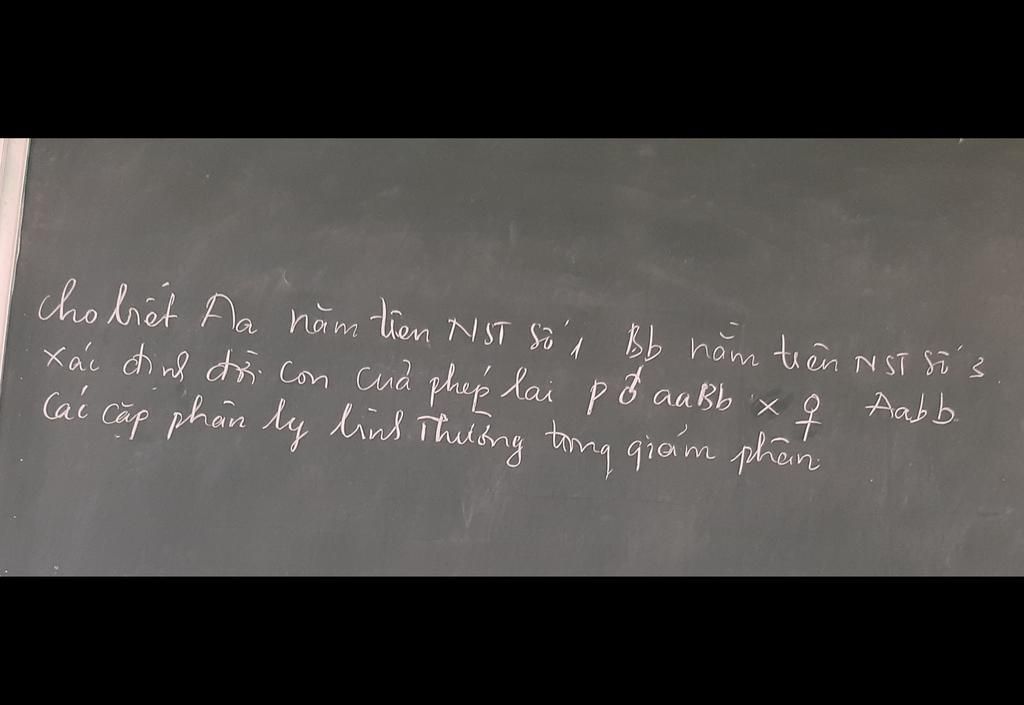 Cho biết Aa nằm trên NST số 1 Bb nằm trên NST số 3.
Xác định đời con của phép lai P ♂ aaBb × ♀ Aabb
Các cặp phân ly bình Thường trong giảm phân.